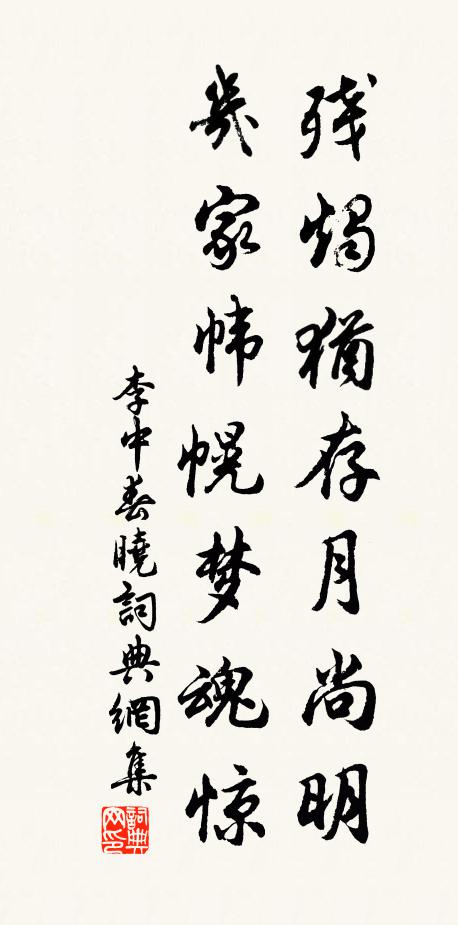 残烛犹存月尚明
几家帏幌梦魂惊
李中春曉詞典網集
詞典网印